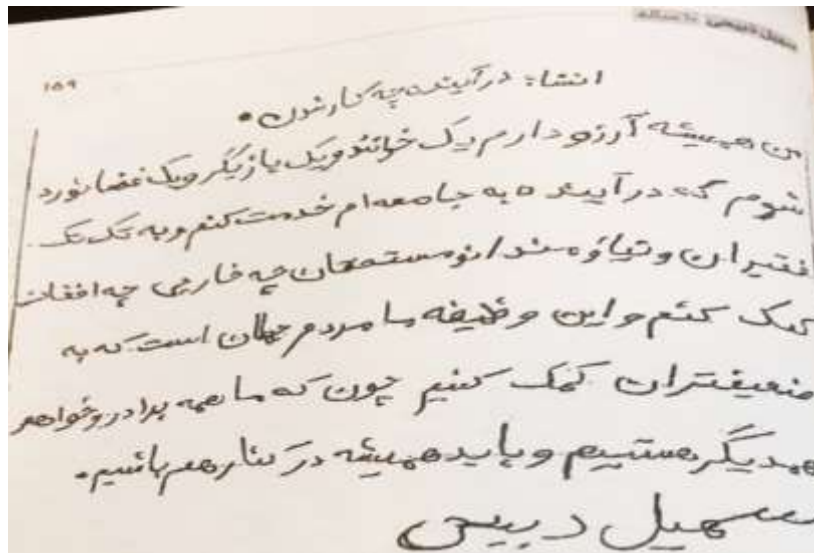 سهیل دبیس ۱۰ ساله
۱۵۹
انشا: در آینده چه کار شدن.
من همیشه آرزو دارم یک خواننده ویک بازیگر ویک فضا نورد
شوم که در آینده به جامعه ام خدمت کنم و به تک تک
فقیران و نیازمندان و مستحقان چه خارجی چه افغان
کمک کنم و این وظیفه ما مردم جهان است که به
ضعیفتران کمک کنیم چون که ما همه برادر و خواهر
همدیگر هستیم و باید همیشه در کنار هم باشیم.
سهیل دبیس